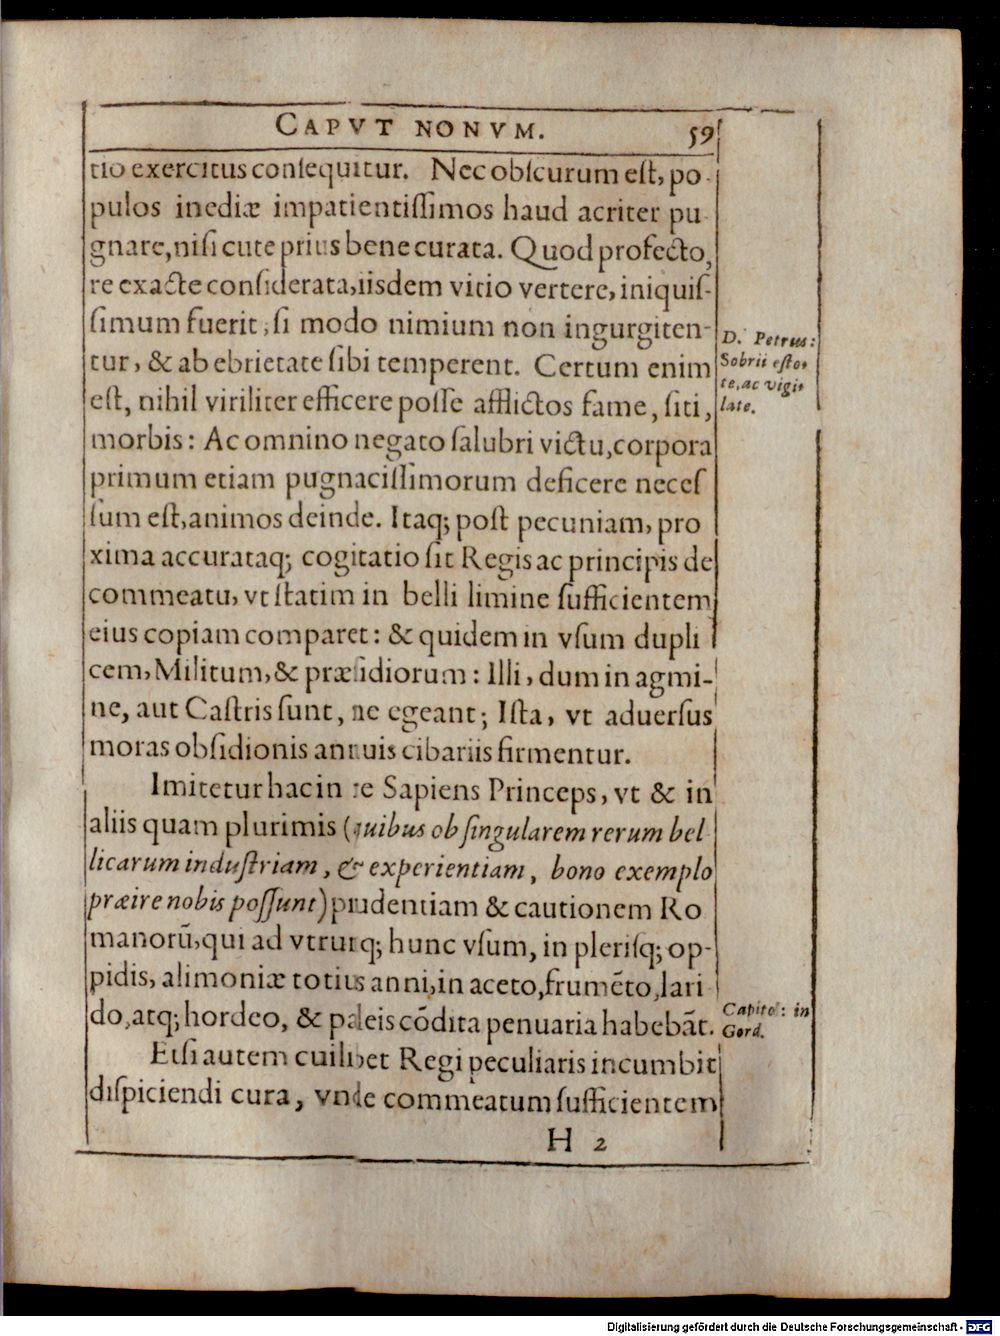 CAPVT NONVM. 59
tio exercitus conſequitur. Nec obſcurum eſt, po
pulos inediæ impatientiſſimos haud acriter pu
gnare, niſi cute prius bene curata. Quod profecto,
re exacte conſiderata, iisdem vitio vertere, iniquiſ-
ſimum fuerit, ſi modo nimium non ingurgiten-
tur, & ab ebrietate ſibi temperent. Certum enim
eſt, nihil viriliter efficere poſſe afflictos fame, ſiti,
morbis: Ac omnino negato ſalubri victu, corpora
primum etiam pugnaciſſimorum deficere neceſ
ſum eſt, animos deinde. Itaq; poſt pecuniam, pro
xima accurataq; cogitatio ſit Regis ac principis de
commeatu, vt ſtatim in belli limine ſufficientem
eius copiam comparet: & quidem in vſum dupli
cem, Militum, & præſidiorum: Illi, dum in agmi-
ne, aut Caſtris ſunt, ne egeant; Iſta, vt aduerſus
moras obſidionis annuis cibariis firmentur.
Imitetur hac in re Sapiens Princeps, vt & in
aliis quam plurimis (quibus ob ſingularem rerum bel
licarum induſtriam, & experientiam, bono exemplo
præire nobis poſſunt) prudentiam & cautionem Ro
manorū, qui ad vtrumq; hunc vſum, in pleriſq; op-
pidis, alimoniæ totius anni, in aceto, frumēto, lari
do, atq; hordeo, & paleis cōdita penuaria habebāt.
Etſi autem cuilibet Regi peculiaris incumbit
diſpiciendi cura, vnde commeatum ſufficientem
H 2
D. Petrus:
Sobrii eſto-
te, ac vigi-
late.
Capito: in
Gord.
Digitalisierung gefördert durch die Deutsche Forschungsgemeinschaft - DFG